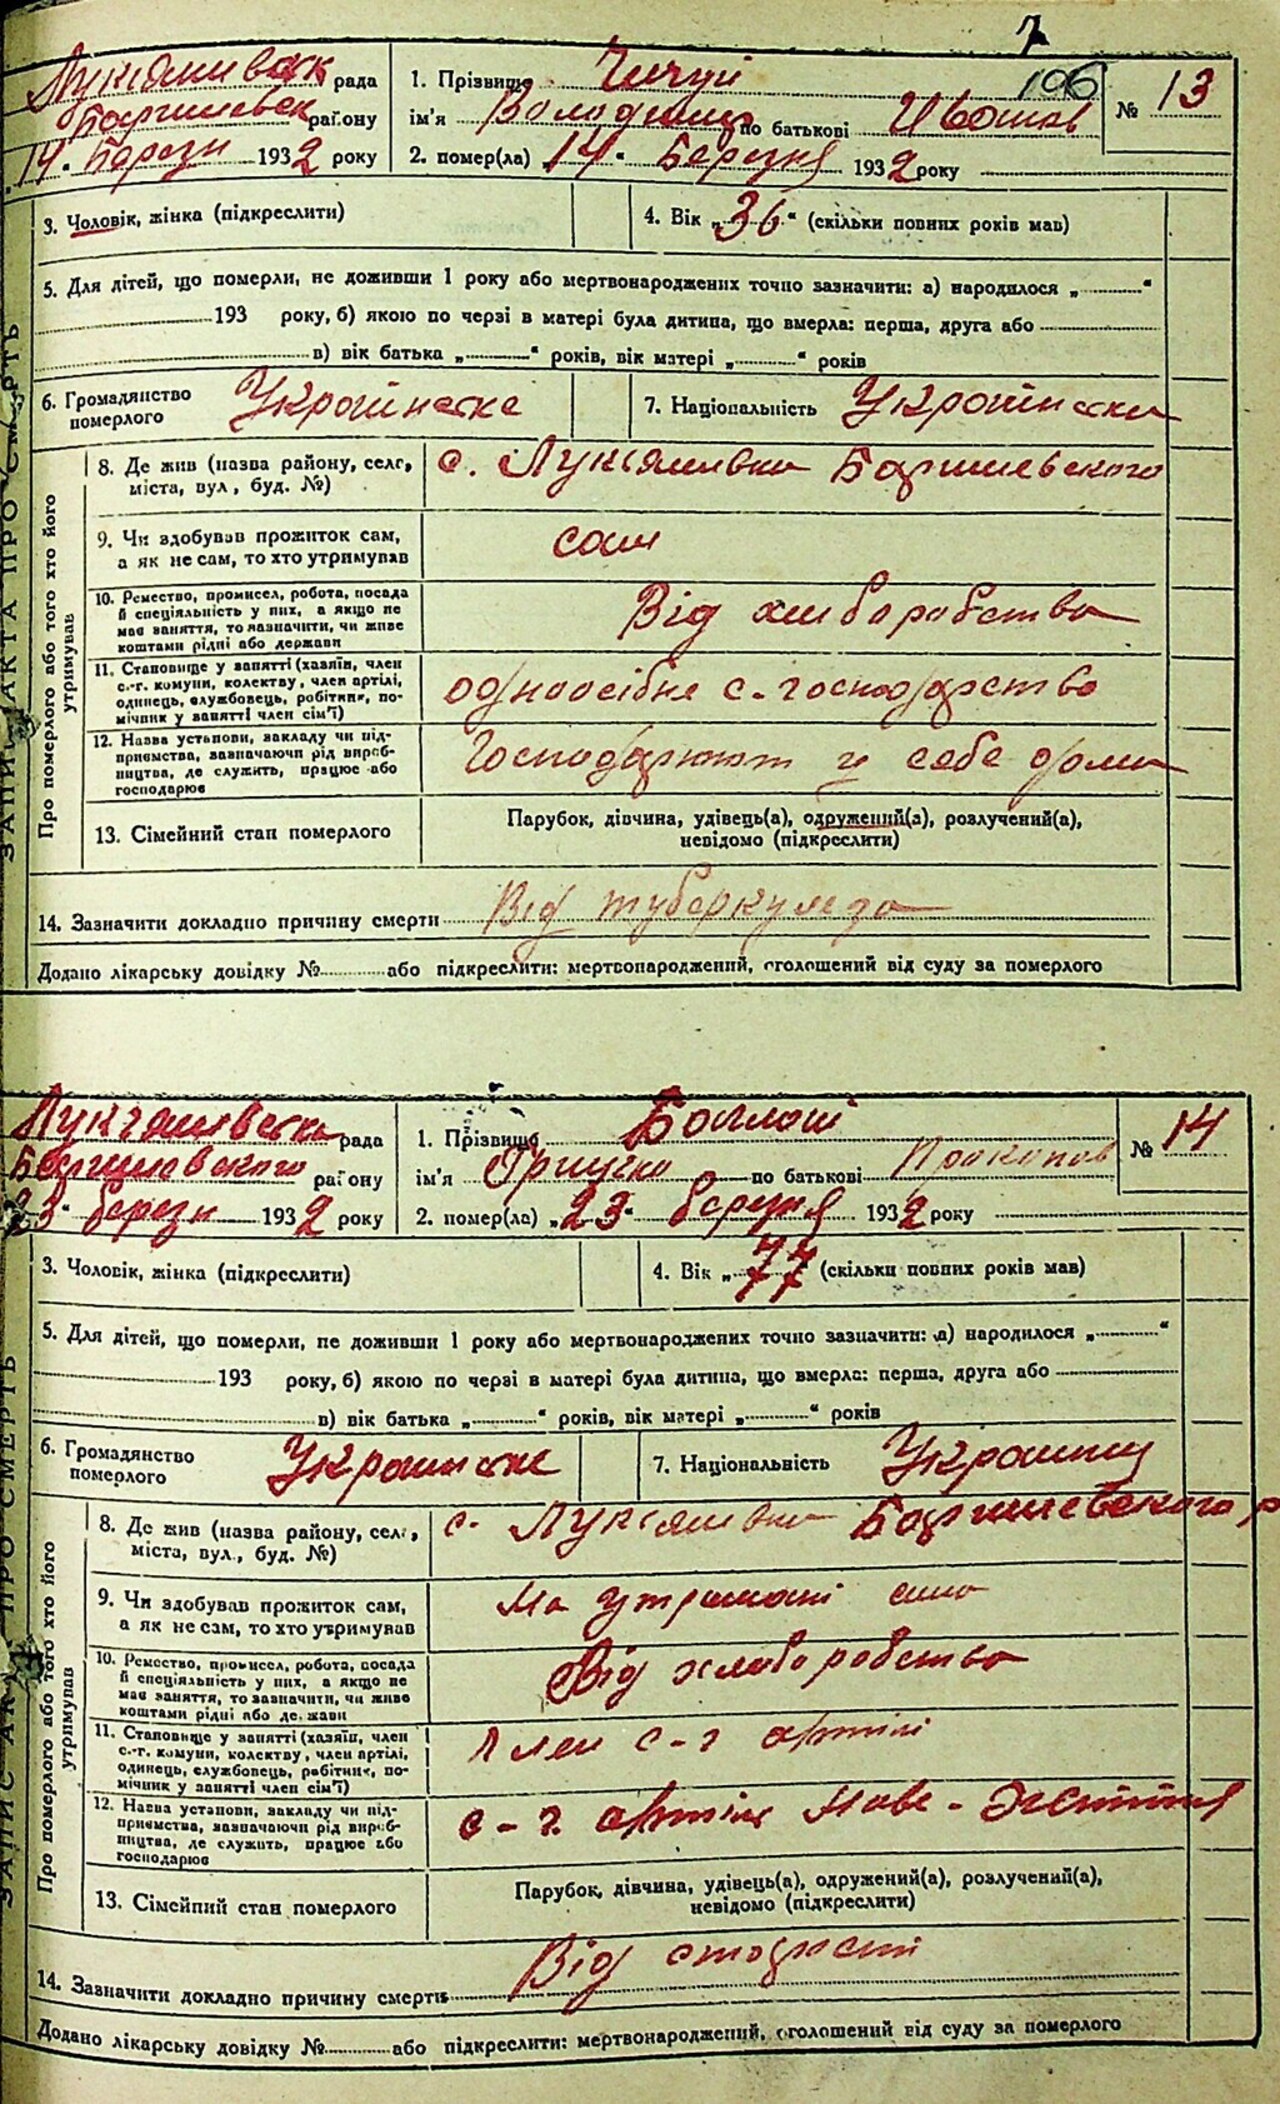 7
106
Лукяшивськ рада
Баришевськ району
14 Березн 1932 року
1. Прізвище Чичуй
ім'я Володимир по батькові Ивонов
№ 13
2. помер(ла) „14“ Березня 1932 року
3. Чоловік, жінка (підкреслити)
4. Вік „36“ (скільки повних років мав)
5. Для дітей, що померли, не доживши 1 року або мертвонароджених точно зазначити: а) народилося „ “
193 року, б) якою по черзі в матері була дитина, що вмерла: перша, друга або
в) вік батька „ “ років, вік матері „ “ років
6. Громадянство померлого Украінске
7. Національність Украінски
ЗАПИС АКТА ПРО СМЕРТЬ
Про померлого або того хто його утримував
8. Де жив (назва району, село,
міста, вул, буд. №)
с. Баришевского
9. Чи здобував прожиток сам,
а як не сам, то хто утримував
сам
10. Ремество, промисел, робота, посада
й спеціяльність у них, а якщо не
має заняття, то зазначити, чи живе
коштами рідні або держави
Від хлиборобства
11. Становище у занятті (хазяїн, член
с.-г. комуни, колективу, член артілі,
одинець, службовець, робітник, по-
мічник у занятті член сім'ї)
одноосібне с-господарство
12. Назва установи, закладу чи під-
приємства, зазначаючи рід вироб-
ництва, де служить, працює або
господарює
Господарюют у себе дома
13. Сімейний стан померлого
Парубок, дівчина, удівець(а), одружений(а), розлучений(а),
невідомо (підкреслити)
14. Зазначити докладно причину смерти Від туберкулеза
Додано лікарську довідку № або підкреслити: мертвонароджений, оголошений від суду за померлого
рада
Баришевского району
23 березн 1932 року
1. Прізвище
ім'я Грицько по батькові Прокопов
№ 14
2. помер(ла) „23“ березня 1932 року
3. Чоловік, жінка (підкреслити)
4. Вік „77“ (скільки повних років мав)
5. Для дітей, що померли, не доживши 1 року або мертвонароджених точно зазначити: а) народилося „ “
193 року, б) якою по черзі в матері була дитина, що вмерла: перша, друга або
в) вік батька „ “ років, вік матері „ “ років
6. Громадянство померлого Украинске
7. Національність Украинец
ЗАПИС АКТА ПРО СМЕРТЬ
Про померлого або того хто його утримував
8. Де жив (назва району, село,
міста, вул., буд. №)
с. Баришевского р
9. Чи здобував прожиток сам,
а як не сам, то хто утримував
На утримані сина
10. Ремество, промисел, робота, посада
й спеціяльність у них, а якщо не
має заняття, то зазначити, чи живе
коштами рідні або держави
Від хлиборобства
11. Становище у занятті (хазяїн, член
с.-г. комуни, колективу, член артілі,
одинець, службовець, робітник, по-
мічник у занятті член сім'ї)
Член с-г артілі
12. Назва установи, закладу чи під-
приємства, зазначаючи рід вироб-
ництва, де служить, працює або
господарює
с-г. артіль Нове-Життя
13. Сімейний стан померлого
Парубок, дівчина, удівець(а), одружений(а), розлучений(а),
невідомо (підкреслити)
14. Зазначити докладно причину смерти Від старости
Додано лікарську довідку № або підкреслити: мертвонароджений, оголошений від суду за померлого